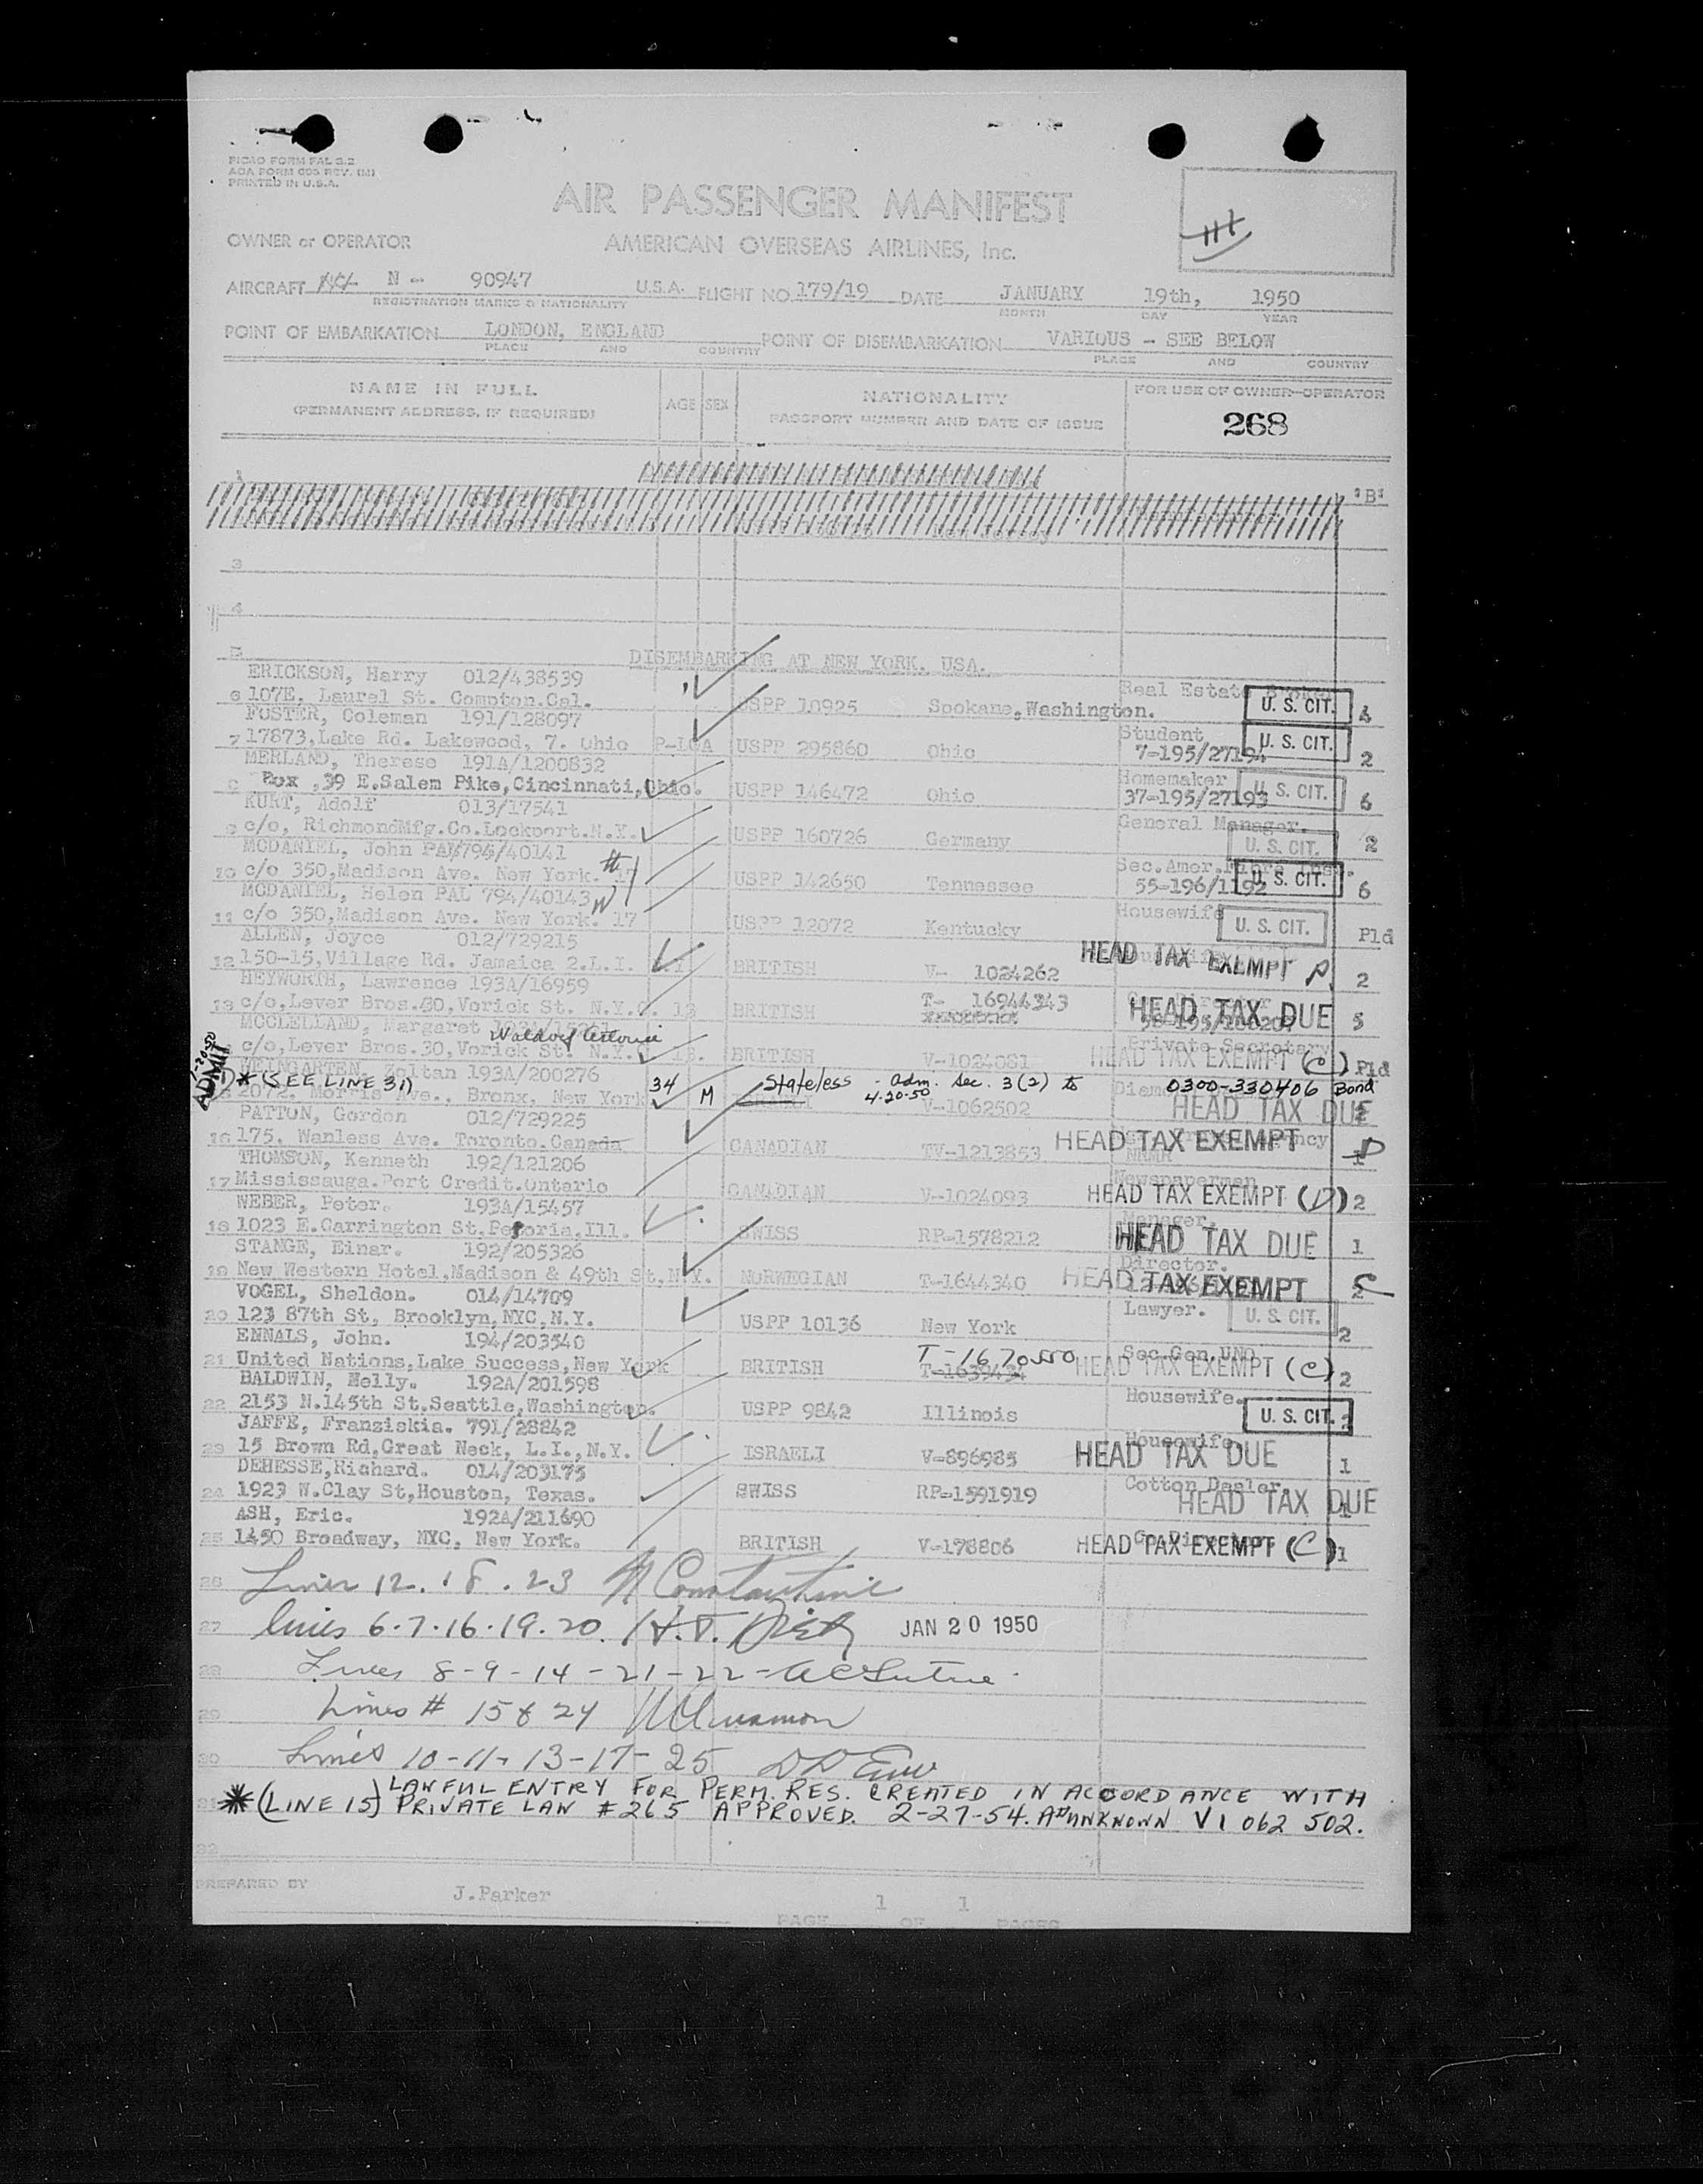 PICAO FORM FAL 3.2
AOA FORM 605 REV. (M)
PRINTED IN U.S.A.
AIR PASSENGER MANIFEST
OWNER or OPERATOR AMERICAN OVERSEAS AIRLINES, Inc.
AIRCRAFT N - 90947 U.S.A. FLIGHT NO. 179/19 DATE JANUARY 19th, 1950
REGISTRATION MARKS & NATIONALITY MONTH DAY YEAR
POINT OF EMBARKATION LONDON, ENGLAND POINT OF DISEMBARKATION VARIOUS - SEE BELOW
PLACE AND COUNTRY PLACE AND COUNTRY
NAME IN FULL AGE SEX NATIONALITY FOR USE OF OWNER-OPERATOR
(PERMANENT ADDRESS, IF REQUIRED) PASSPORT NUMBER AND DATE OF ISSUE
268
"B"
3
4
5 DISEMBARKING AT NEW YORK. USA.
ERICKSON, Harry 012/438539 Real Estate
6 107E. Laurel St. Compton.Cal. USPP 10925 Spokane,Washington. U. S. CIT. 4
FOSTER, Coleman 191/128097 Student
7 17873,Lake Rd. Lakewood, 7. Ohio USPP 295860 Ohio 7-195/27194 U. S. CIT. 2
MERLAND, Therese 191A/1200832 Homemaker
Box ,39 E.Salem Pike,Cincinnati,Ohio. USPP 146472 Ohio 37-195/27193 U. S. CIT. 6
KURT, Adolf 013/17541 General Manager.
9 c/o, RichmondMfg.Co.Lockport.N.Y. USPP 160726 Germany U. S. CIT. 2
MCDANIEL, John PAL794/40141 Sec.Amer.
10 c/o 350,Madison Ave. New York. 17 USPP 142650 Tennessee 55-196/1192 U. S. CIT. 6
MCDANIEL, Helen PAL 794/40143 Housewife
11 c/o 350,Madison Ave. New York. 17 USPP 12072 Kentucky U. S. CIT. Pld
ALLEN, Joyce 012/729215
12 150-15,Village Rd. Jamaica 2.L.I. BRITISH V- 1024262 HEAD TAX EXEMPT 2
HEYWORTH, Lawrence 193A/16959
13 c/o,Lever Bros.30,Vorick St. N.Y. BRITISH T- 16944343 HEAD TAX DUE 5
MCCLELLAND, Margaret Waldorf Astoria Private Secretary
c/o,Lever Bros.30,Vorick St. N.Y. 13. BRITISH V-1024081 HEAD TAX EXEMPT (C) Pld
ADMIT
WEINGARTEN, Zoltan 193A/200276
* (SEE LINE 31) 34 M Stateless - Adm. Sec. 3(2) to 4-20-50 0300-330406 Bond
2072, Morris Ave., Bronx, New York V-1062502 HEAD TAX DUE
PATTON, Gordon 012/729225
16 175. Wanless Ave. Toronto.Canada CANADIAN TV-1213853 HEAD TAX EXEMPT D
THOMSON, Kenneth 192/121206 Newspaperman
17 Mississauga.Port Credit.Ontario CANADIAN V-1024093 HEAD TAX EXEMPT (D) 2
WEBER, Peter. 193A/15457 Manager.
18 1023 E.Carrington St,Peoria,Ill. SWISS RP-1578212 HEAD TAX DUE 1
STANGE, Einar. 192/205326 Director.
19 New Western Hotel,Madison & 49th St,N.Y. NORWEGIAN T-1644340 HEAD TAX EXEMPT
VOGEL, Sheldon. 014/14709 Lawyer.
20 123 87th St, Brooklyn,NYC,N.Y. USPP 10136 New York U. S. CIT. 2
ENNALS, John. 194/203540 T-1670550 Sec.Gen.UNO.
21 United Nations,Lake Success,New York BRITISH T-1639434 HEAD TAX EXEMPT (C) 2
BALDWIN, Nelly. 192A/201598 Housewife.
22 2153 N.145th St.Seattle,Washington. USPP 9842 Illinois U. S. CIT.
JAFFE, Franziskia. 791/28842 Housewife.
23 15 Brown Rd,Great Neck, L.I.,N.Y. ISRAELI V-896985 HEAD TAX DUE 1
DEHESSE,Richard. 014/203175 Cotton Dealer.
24 1923 W.Clay St,Houston, Texas. SWISS RP-1591919 HEAD TAX DUE
ASH, Eric. 192A/211690
25 1450 Broadway, NYC, New York. BRITISH V-178806 HEAD TAX EXEMPT (C) 1
26 Lines 12. 18. 23 N Constantine
27 lines 6.7.16.19.20. JAN 20 1950
28 Lines 8-9-14-21-22-
29 Lines # 15 & 24
30 Lines 10-11-13-17-25
* (LINE 15) LAWFUL ENTRY FOR PERM. RES. CREATED IN ACCORDANCE WITH
PRIVATE LAW #265 APPROVED. 2-27-54. A# UNKNOWN V1 062 502.
32
PREPARED BY J.Parker
PAGE 1 OF 1 PAGES